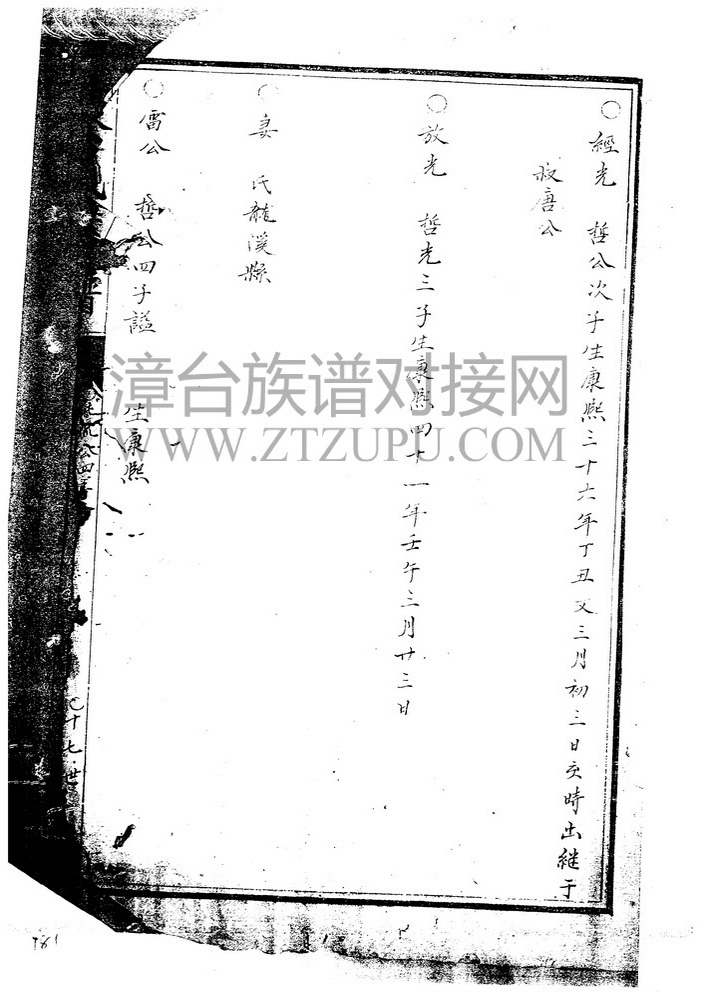 ○經光 哲公次子生康熙三十六年丁丑又三月初三日亥時出継于
叔唐公
○放光 哲光三子生康熙四十一年壬午三月廿三日
○妻 氏龍溪縣
○雷公 哲公四子謚 生康熙
十七世
181
漳台族谱对接网
WWW.ZTZUPU.COM